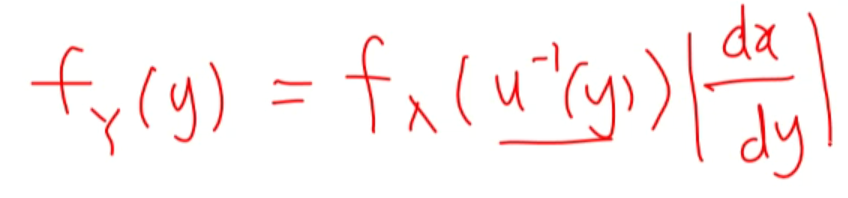 f_Y(y) = f_X(u^{-1}(y))|dx/dy|